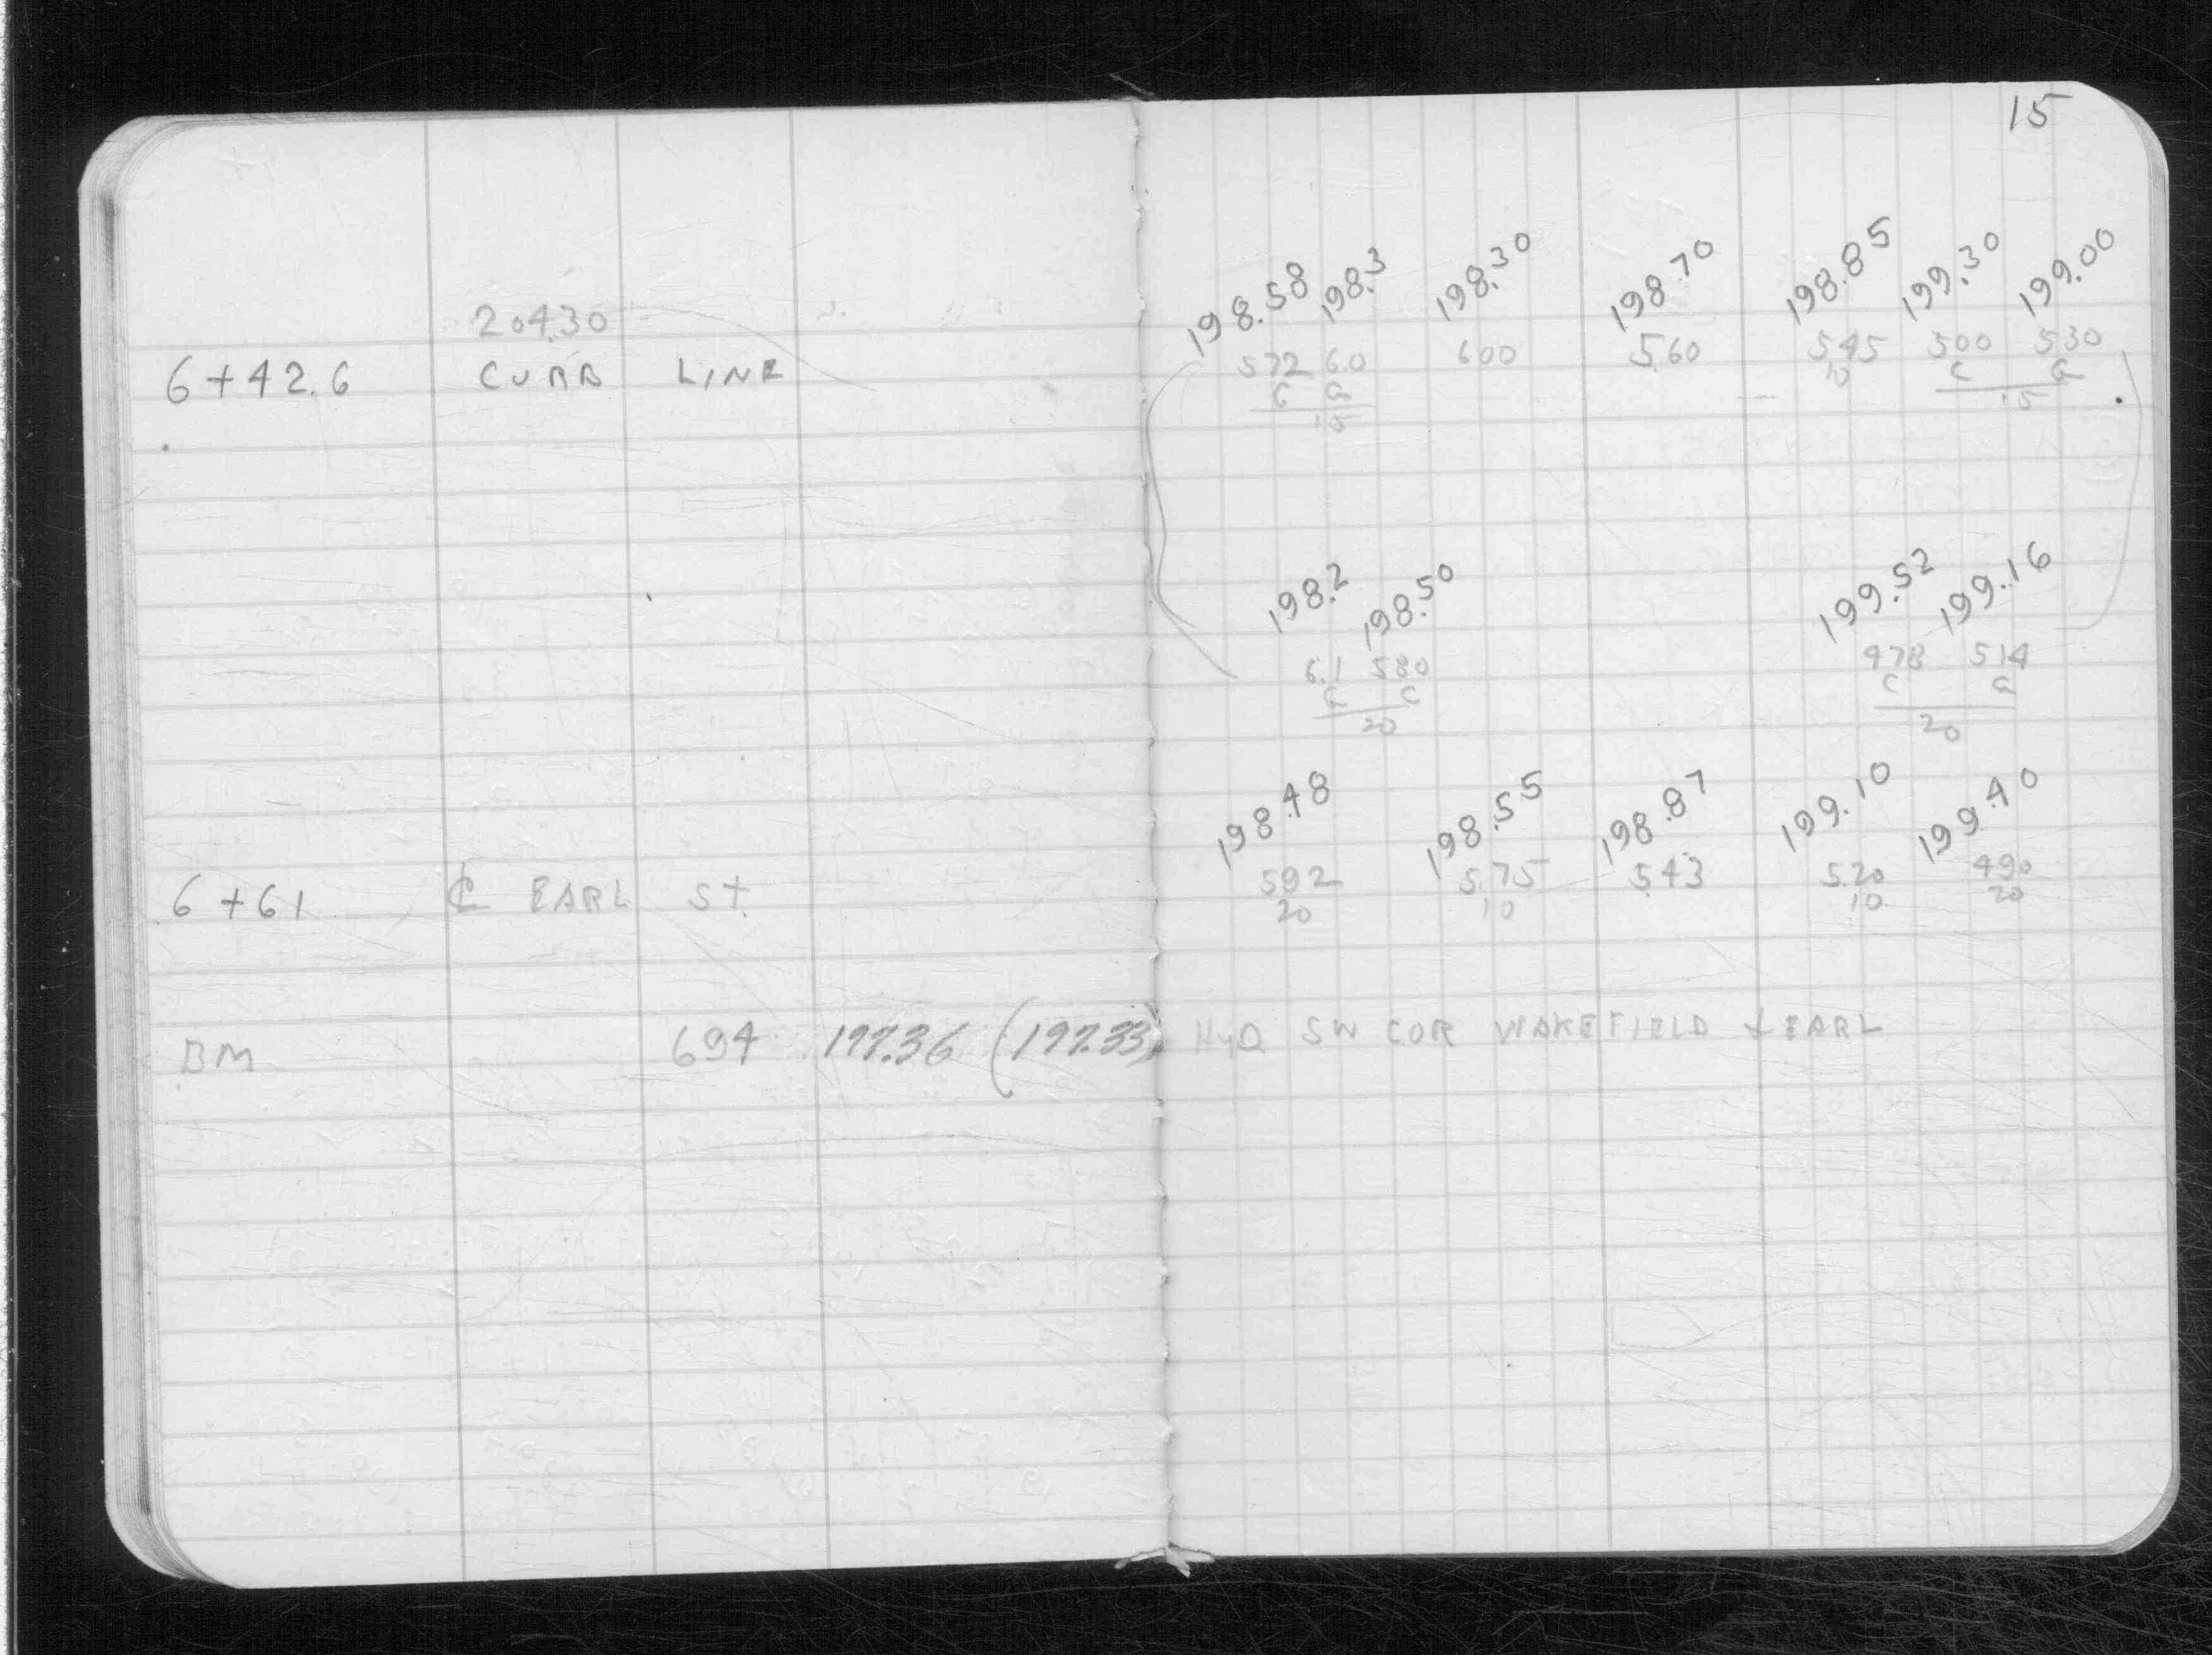 15
198.58 198.3 198.30 198.70 198.85 199.30 199.00
204.30
6+42.6 CURB LINE 572 60 600 560 545 500 530
C G 10 C G
15 15
198.2 198.50 199.52 199.16
6.1 580 478 514
G C C G
20 20
198.48 198.55 198.87 199.10 199.40
6+61 ℄ EARL ST. 592 575 543 520 490
20 10 10 20
BM 694 197.36 (197.33) HYD SW COR WAKEFIELD + EARL